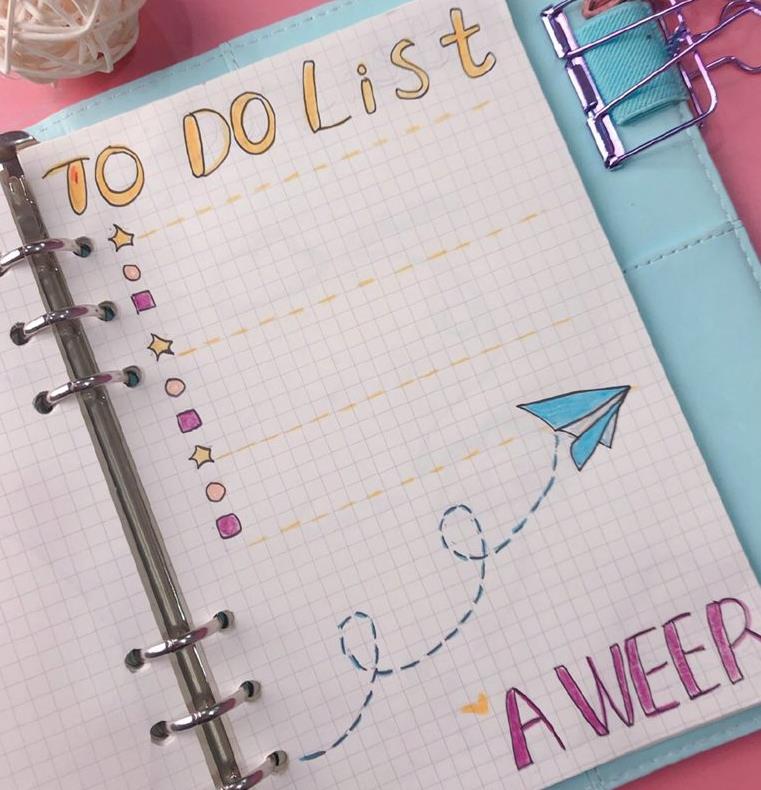 TO DO List
A WEER